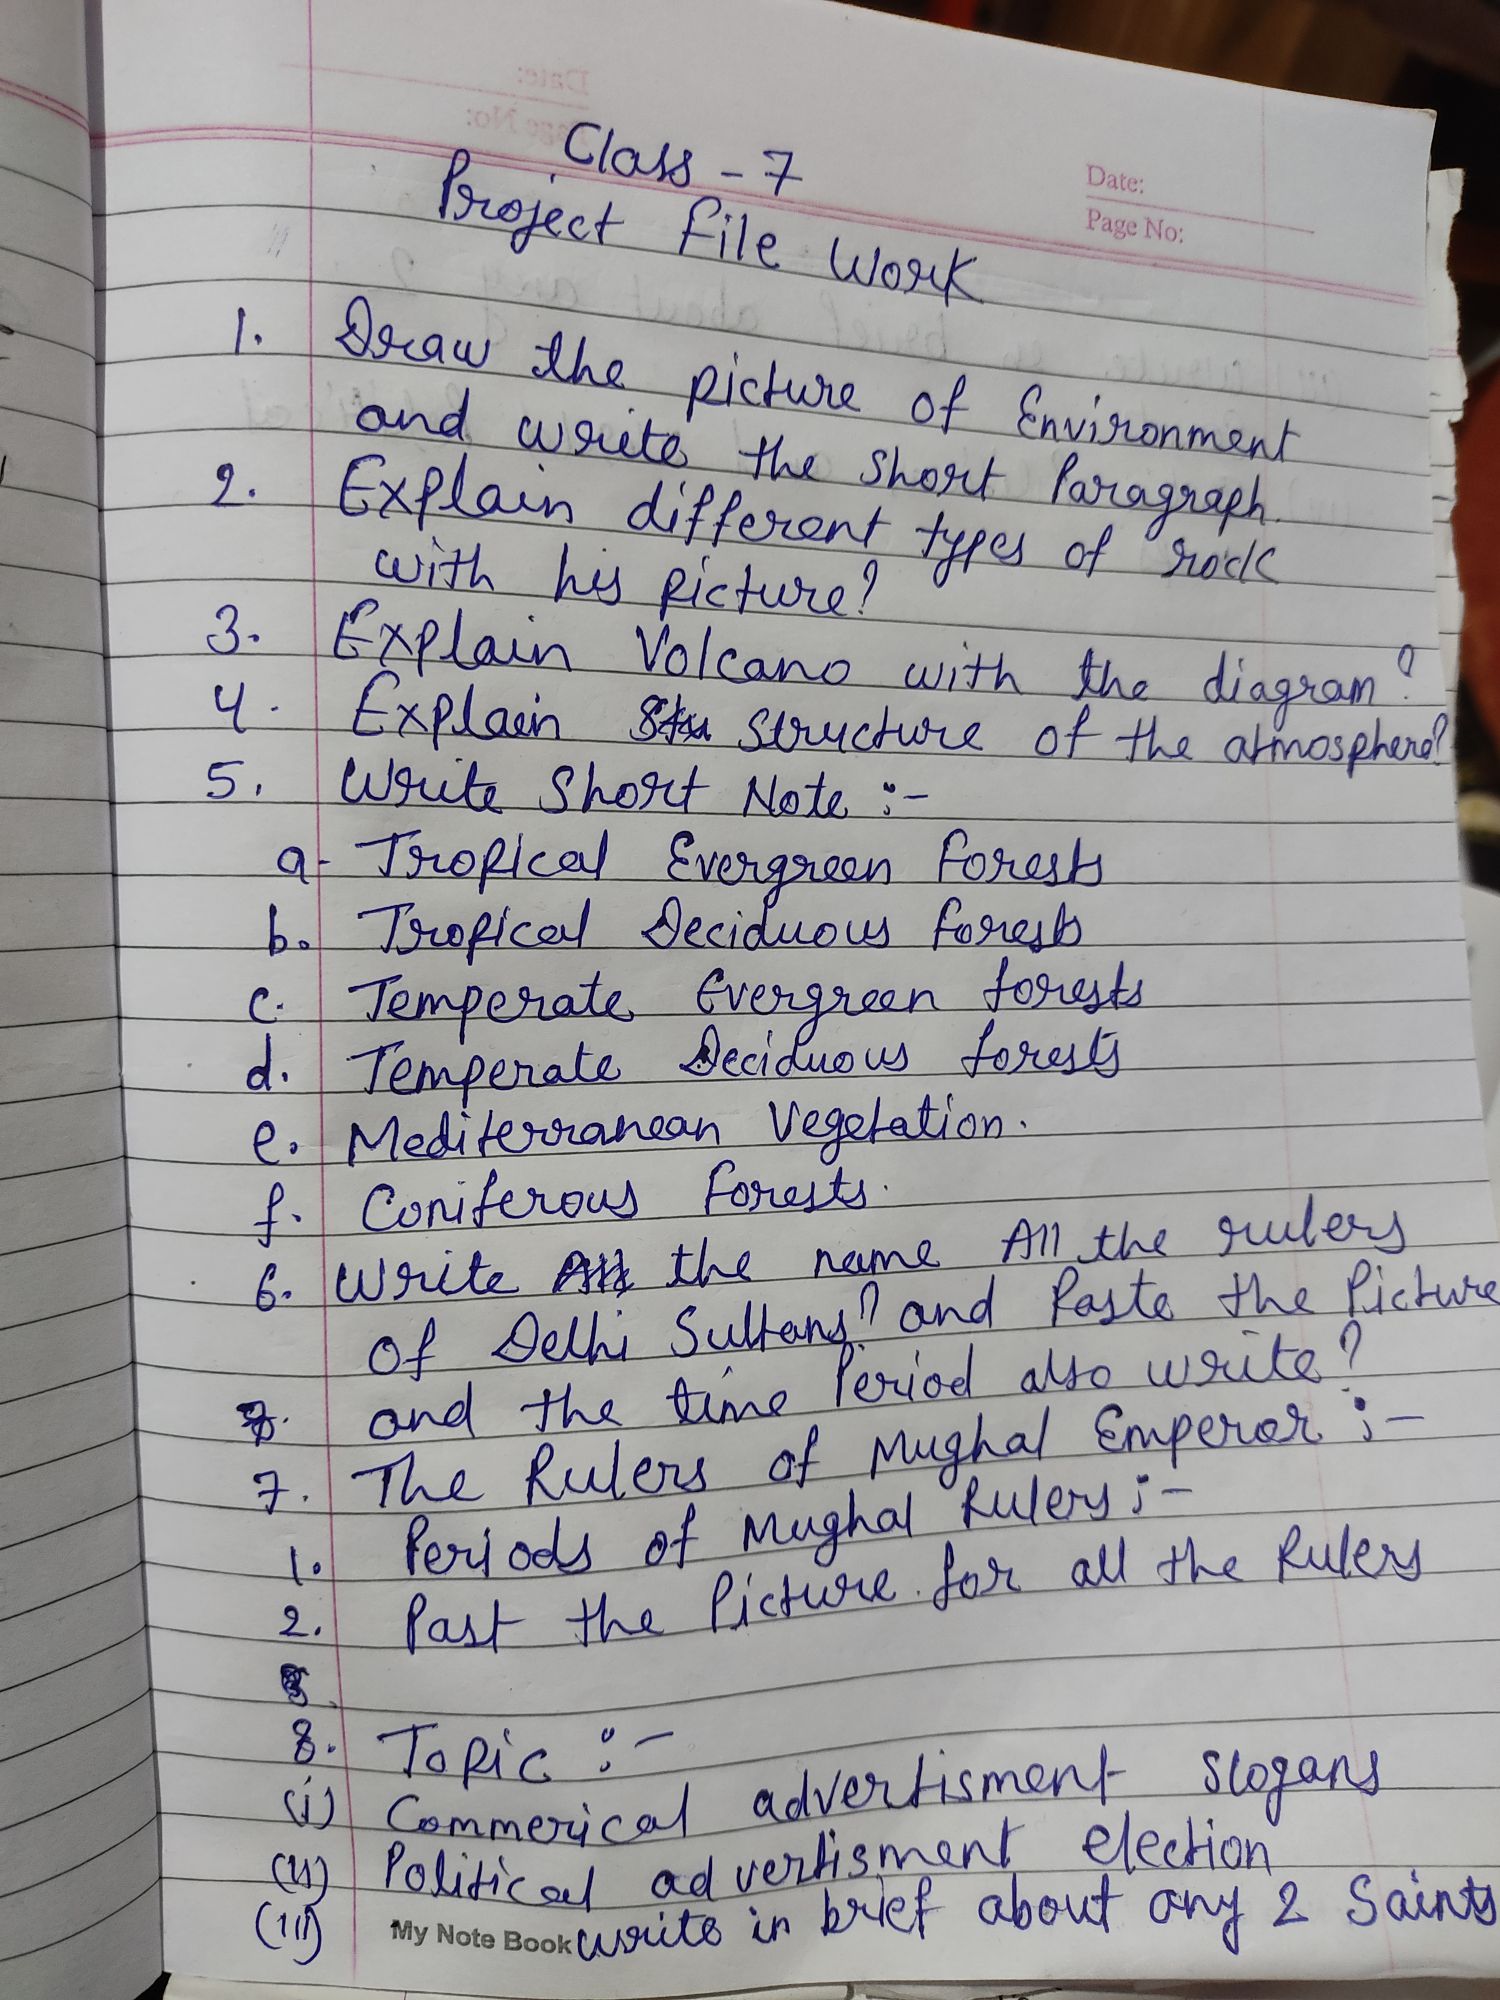 Date:
Page No:
Class - 7
Project File Work
1. Draw the picture of Environment
and write the short Paragraph.
2. Explain different types of rock
with his picture?
3. Explain Volcano with the diagram?
4. Explain Stu Structure of the atmosphere?
5. Write Short Note :-
a- Tropical Evergreen Forests
b. Tropical Deciduous Forests
c. Temperate Evergreen forests
d. Temperate Deciduous forests
e. Mediterranean Vegetation.
f. Coniferous Forests.
6. Write All the name All the rulers
of Delhi Sultans? and Paste the Picture
7. and the time Period also write?
7. The Rulers of Mughal Emperor :-
1. Periods of Mughal Rulers :-
2. Past the Picture for all the Rulers
8. Topic :-
(i) Commerical advertisment slogans
(ii) Political advertisment election
(iii) write in brief about any 2 Saints
My Note Book